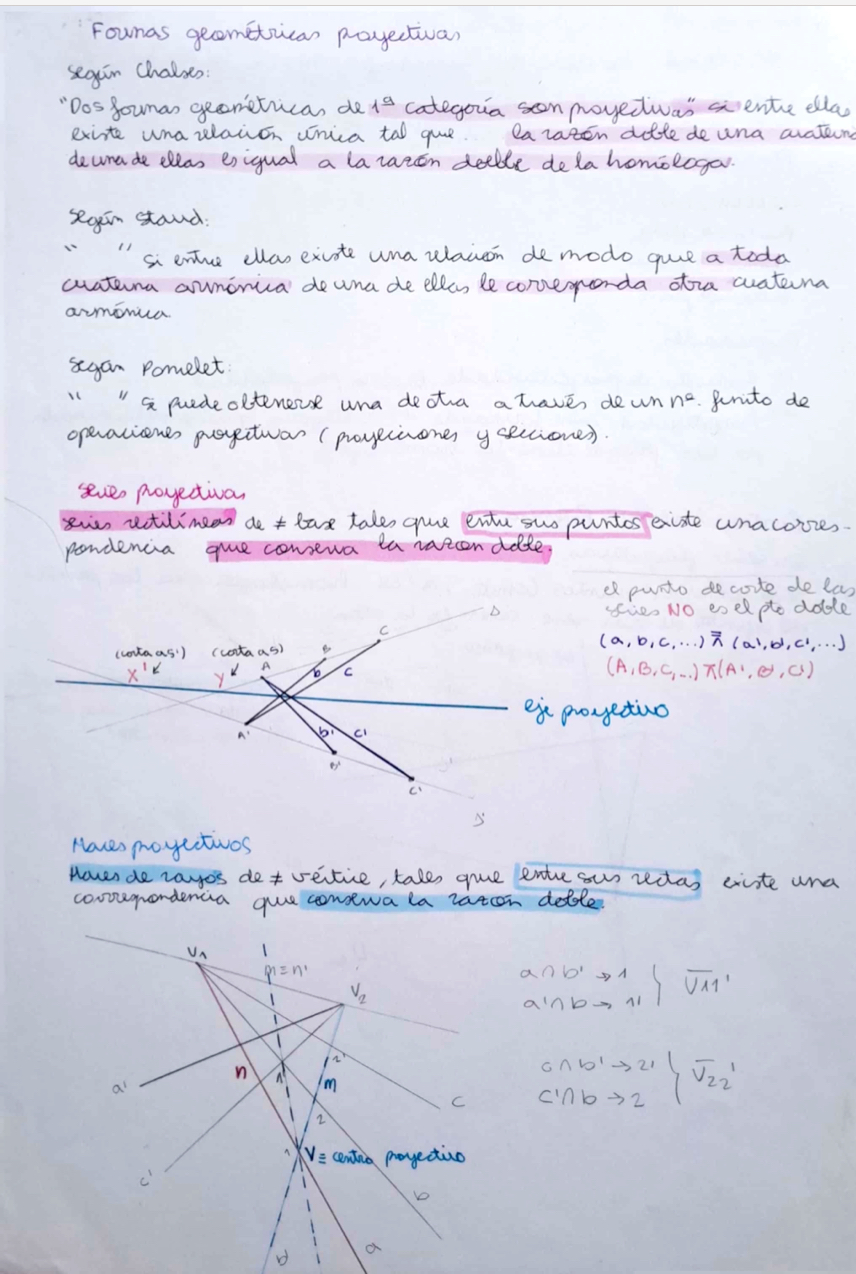 Formas geométricas proyectivas
Según Chalses:
"Dos formas geométricas de 1ª categoría son proyectivas" si entre ellas
existe una relación única tal que... la razón doble de una cuaterna
de una de ellas es igual a la razón doble de la homóloga.
Según Staud:
" " si entre ellas existe una relación de modo que a toda
cuaterna armónica de una de ellas le corresponda otra cuaterna
armónica.
Según Pomelet:
" " si puede obtenerse una de otra a través de un nº. finito de
operaciones proyectivas (proyecciones y secciones).
Series proyectivas
Series rectilíneas de ≠ base tales que entre sus puntos existe una corres-
pondencia que conserva la razón doble.
el punto de corte de las
series NO es el pto doble
(a, b, c, ...) ⊼ (a', b', c', ...)
(A, B, C, ...) ⊼ (A', B', C')
(corta a s') (corta a s)
X' Y A B C s
b c
eje proyectivo
A' b' c'
B'
C'
s'
Haces proyectivos
Haces de rayos de ≠ vértice, tales que entre sus rectas existe una
correspondencia que conserva la razón doble.
V1 m≡n' V2
a∩b' → 1 } V11'
a'∩b → 1'
c∩b' → 2' } V22'
c'∩b → 2
a' n 1' 2' m c
2
1 V≡ centro proyectivo
c' b
b' a